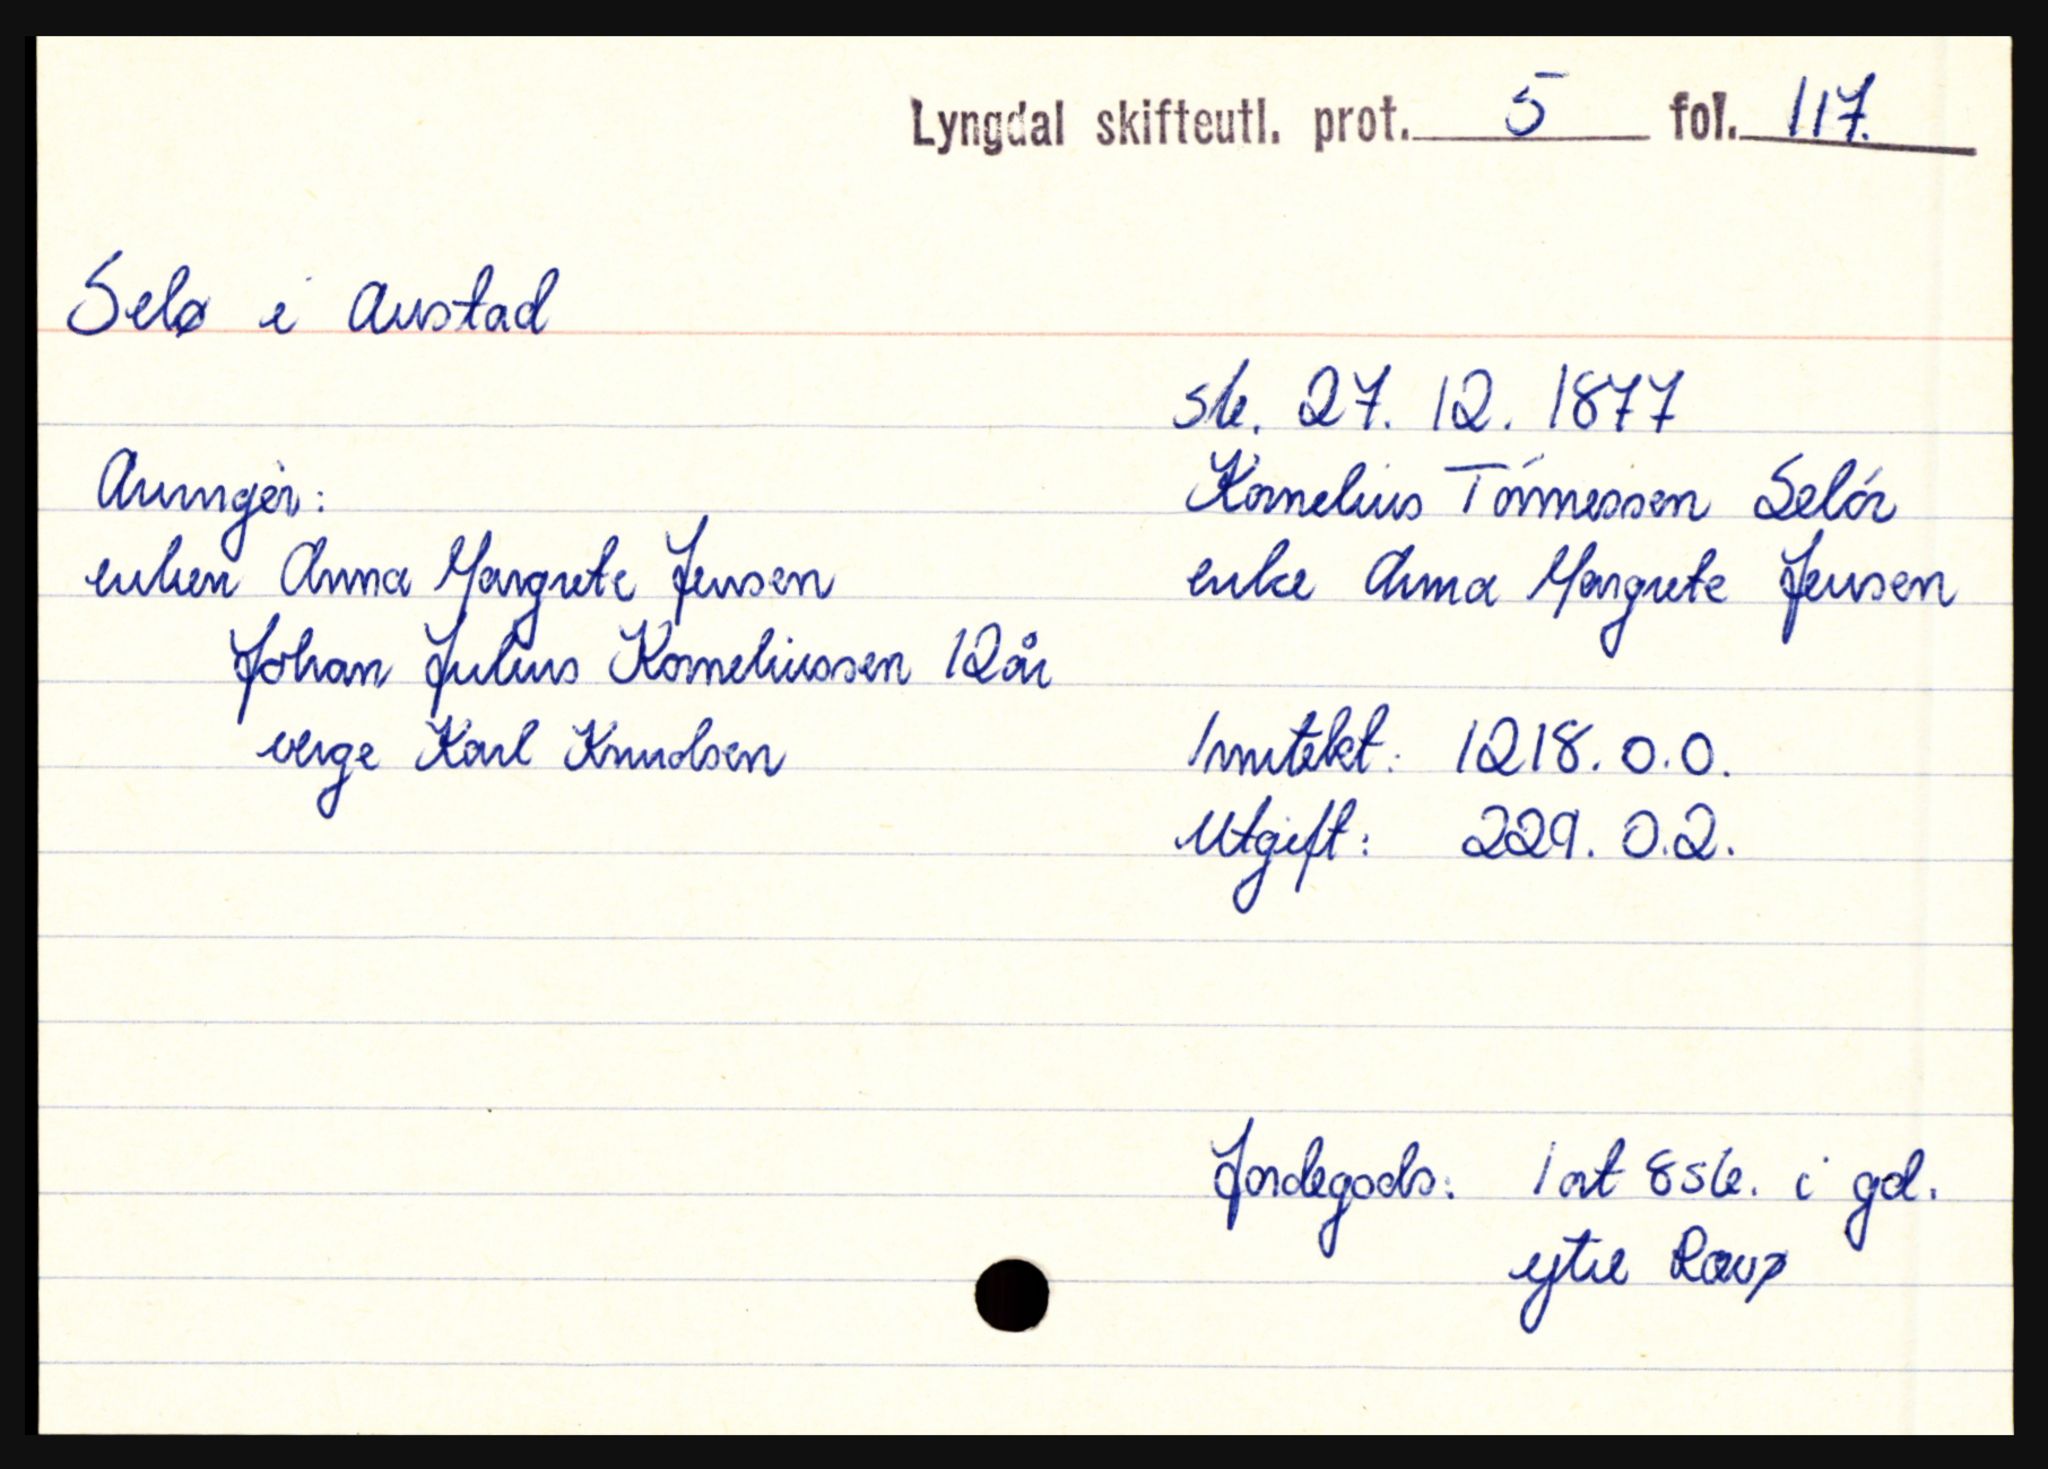 Lyngdal skifteutl. prot. 5 fol. 117.
Selø i Austad
sk. 27. 12. 1877
Kornelius Tónnessen Selór
enke Anna Margrete Jensen
Inntekt: 1218. 0. 0.
Utgift: 229. 0. 2.
Arvinger:
enken Anna Margrete Jensen
Johan Julius Korneliussen 12 år
verge Karl Knudsen
Jordegods: 1 ort 8 sk. i gd.
ytre